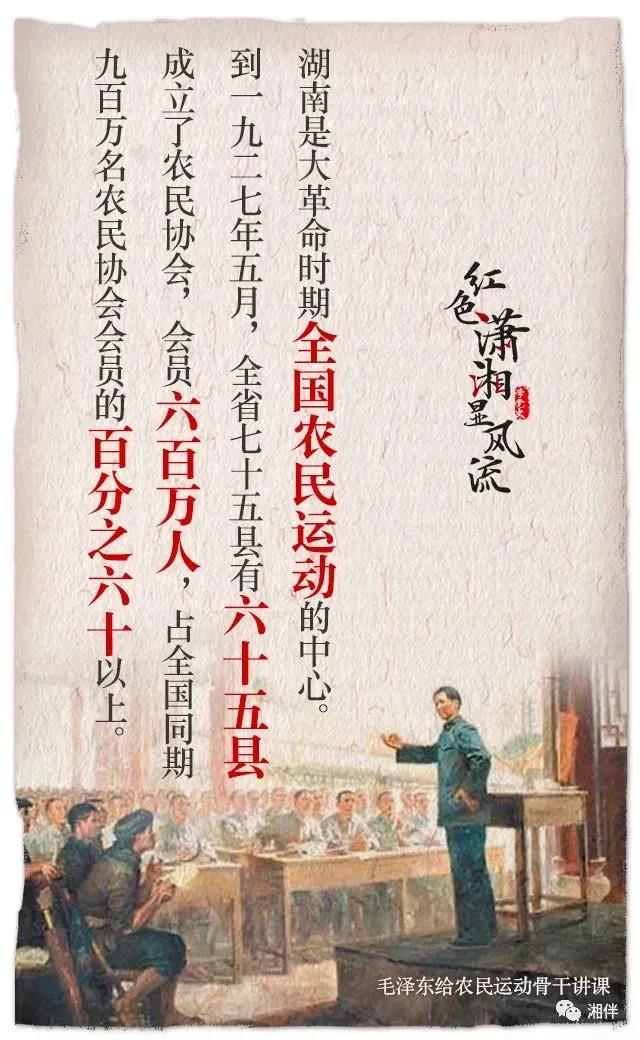 红色潇湘显风流
湖南是大革命时期全国农民运动的中心。
到一九二七年五月，全省七十五县有六十五县
成立了农民协会，会员六百万人，占全国同期
九百万名农民协会会员的百分之六十以上。
毛泽东给农民运动骨干讲课
湘伴